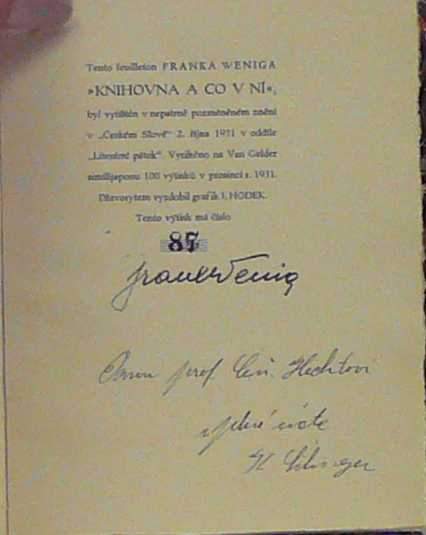 Tento feuilleton FRANKA WENIGA
»KNIHOVNA A CO V NÍ«,
byl vytištěn v nepatrně pozměněném znění
v „Českém Slově“ 2. října 1931 v oddíle
„Literární pátek“. Vytištěno na Van Gelder
similijaponu 100 výtisků v prosinci r. 1931.
Dřevorytem vyzdobil grafik J. HODEK.
Tento výtisk má číslo
85
Frank Wenig
prof. Hechtovi
v plné úctě